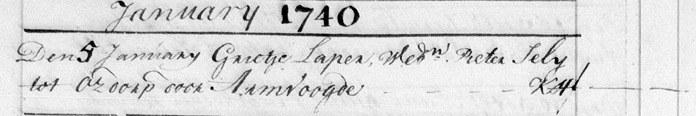 January 1740
Den 5 January Grietje Lapen, Wedn. Pieter Sely
tot Ozdorp door Armvoogde